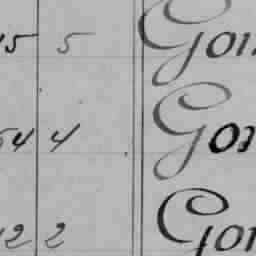 15 5 Gon
54 4 Gon
12 2 Gon